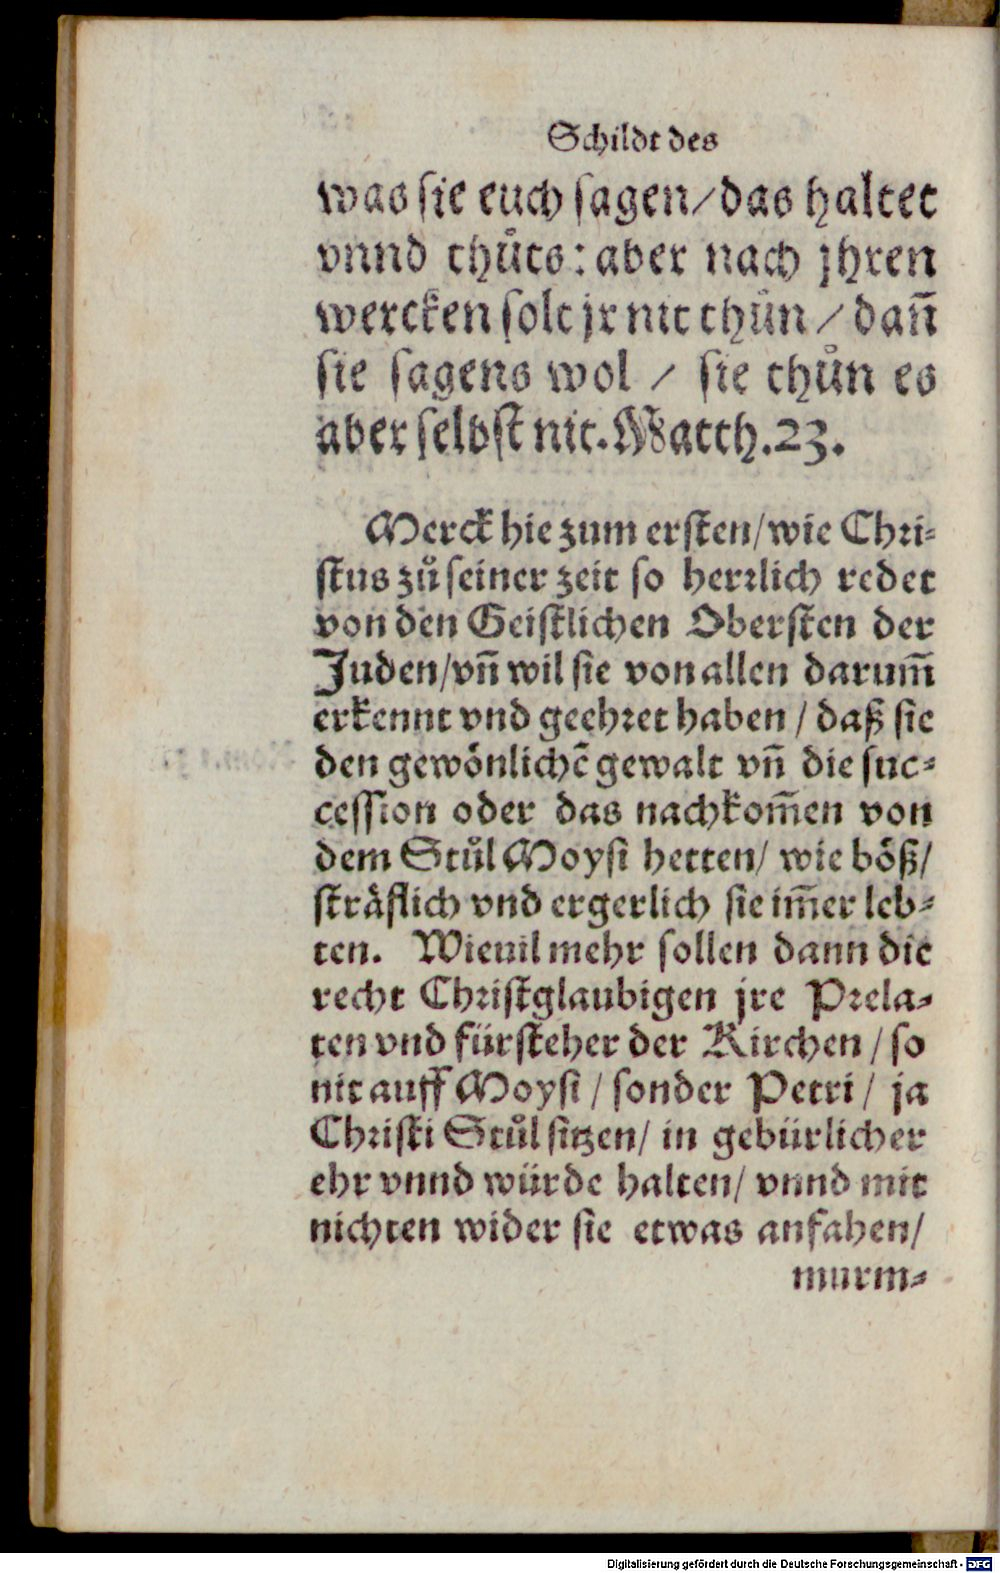 Schildt des
was sie euch sagen/das haltet
vnnd thůts: aber nach jhren
wercken solt jr nit thůn / dan̄
sie sagens wol / sie thůn es
aber selbst nit. Matth.23.
Merck hie zum ersten/wie Chri-
stus zů seiner zeit so herrlich redet
von den Geistlichen Obersten der
Juden/vn̄ wil sie von allen darum̄
erkennt vnd geehret haben / daß sie
den gewönlichē gewalt vn̄ die suc-
cession oder das nachkom̄en von
dem Stůl Moysi hetten/ wie böß/
sträflich vnd ergerlich sie im̄er leb-
ten. Wieuil mehr sollen dann die
recht Christglaubigen jre Prela-
ten vnd fürsteher der Kirchen / so
nit auff Moysi / sonder Petri / ja
Christi Stůl sitzen/ in gebürlicher
ehr vnnd würde halten/ vnnd mit
nichten wider sie etwas anfahen/
murm-
Digitalisierung gefördert durch die Deutsche Forschungsgemeinschaft - DFG